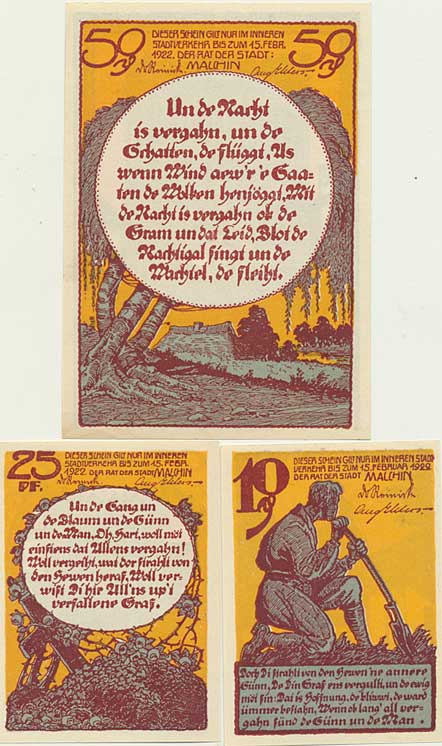 50 50
DIESER SCHEIN GILT NUR IM INNEREN
STADTVERKEHR BIS ZUM 15. FEBR.
1922. DER RAT DER STADT:
MALCHIN
Un de Nacht
is vergahn, un de
Schatten, de flüggt, As
wenn Wind aew'r'e Saa-
ten de Wolken henjöggt. Mit
de Nacht is vergahn ok de
Gram un dat Leid, Blot de
Nachtigal singt un de
Wachtel, de fleiht.
25
PF.
DIESER SCHEIN GILT NUR IM INNEREN
STADTVERKEHR BIS ZUM 15. FEBR.
1922. DER RAT DER STADT MALCHIN
Un de Sang un
de Blaum un de Sünn
un de Man, Oh, Hart, woll möt
einstens dat Allens vergahn!
Woll vergeiht, wat dor strahlt von
den Hewen heraf, Woll ver-
wist Di hie All'ns up't
verfallene Graf.
10
DIESER SCHEIN GILT NUR IM INNEREN STADT-
VERKEHR BIS ZUM 15. FEBRUAR 1922
DER RAT DER STADT MALCHIN
Doch Di strahlt von den Hewen 'ne annere
Sünn, De Din Graf ens vergullt, un de ewig
möt sin: Dat is Hoffnung, de bliwwt, de ward
ümmer bestahn, Wenn ok lang' all ver-
gahn sünd de Sünn un de Man.